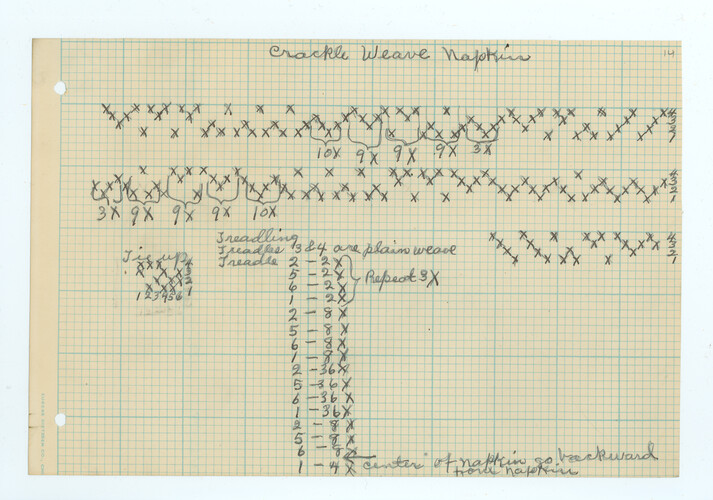 Crackle Weave Napkin
14
4
3
2
1
10X 9X 9X 9X 3X
4
3
2
1
3X 9X 9X 9X 10X
4
3
2
1
Treadling
Treadles 3 & 4 are plain weave
Tie up
4
3
2
1
1 2 3 4 5 6
Treadle 2 - 2X
5 - 2X
6 - 2X
1 - 2X
Repeat 3X
2 - 8X
5 - 8X
6 - 8X
1 - 8X
2 - 36X
5 - 36X
6 - 36X
1 - 36X
2 - 8X
5 - 8X
6 - 8X
1 - 4X center of napkin go backward
from napkin